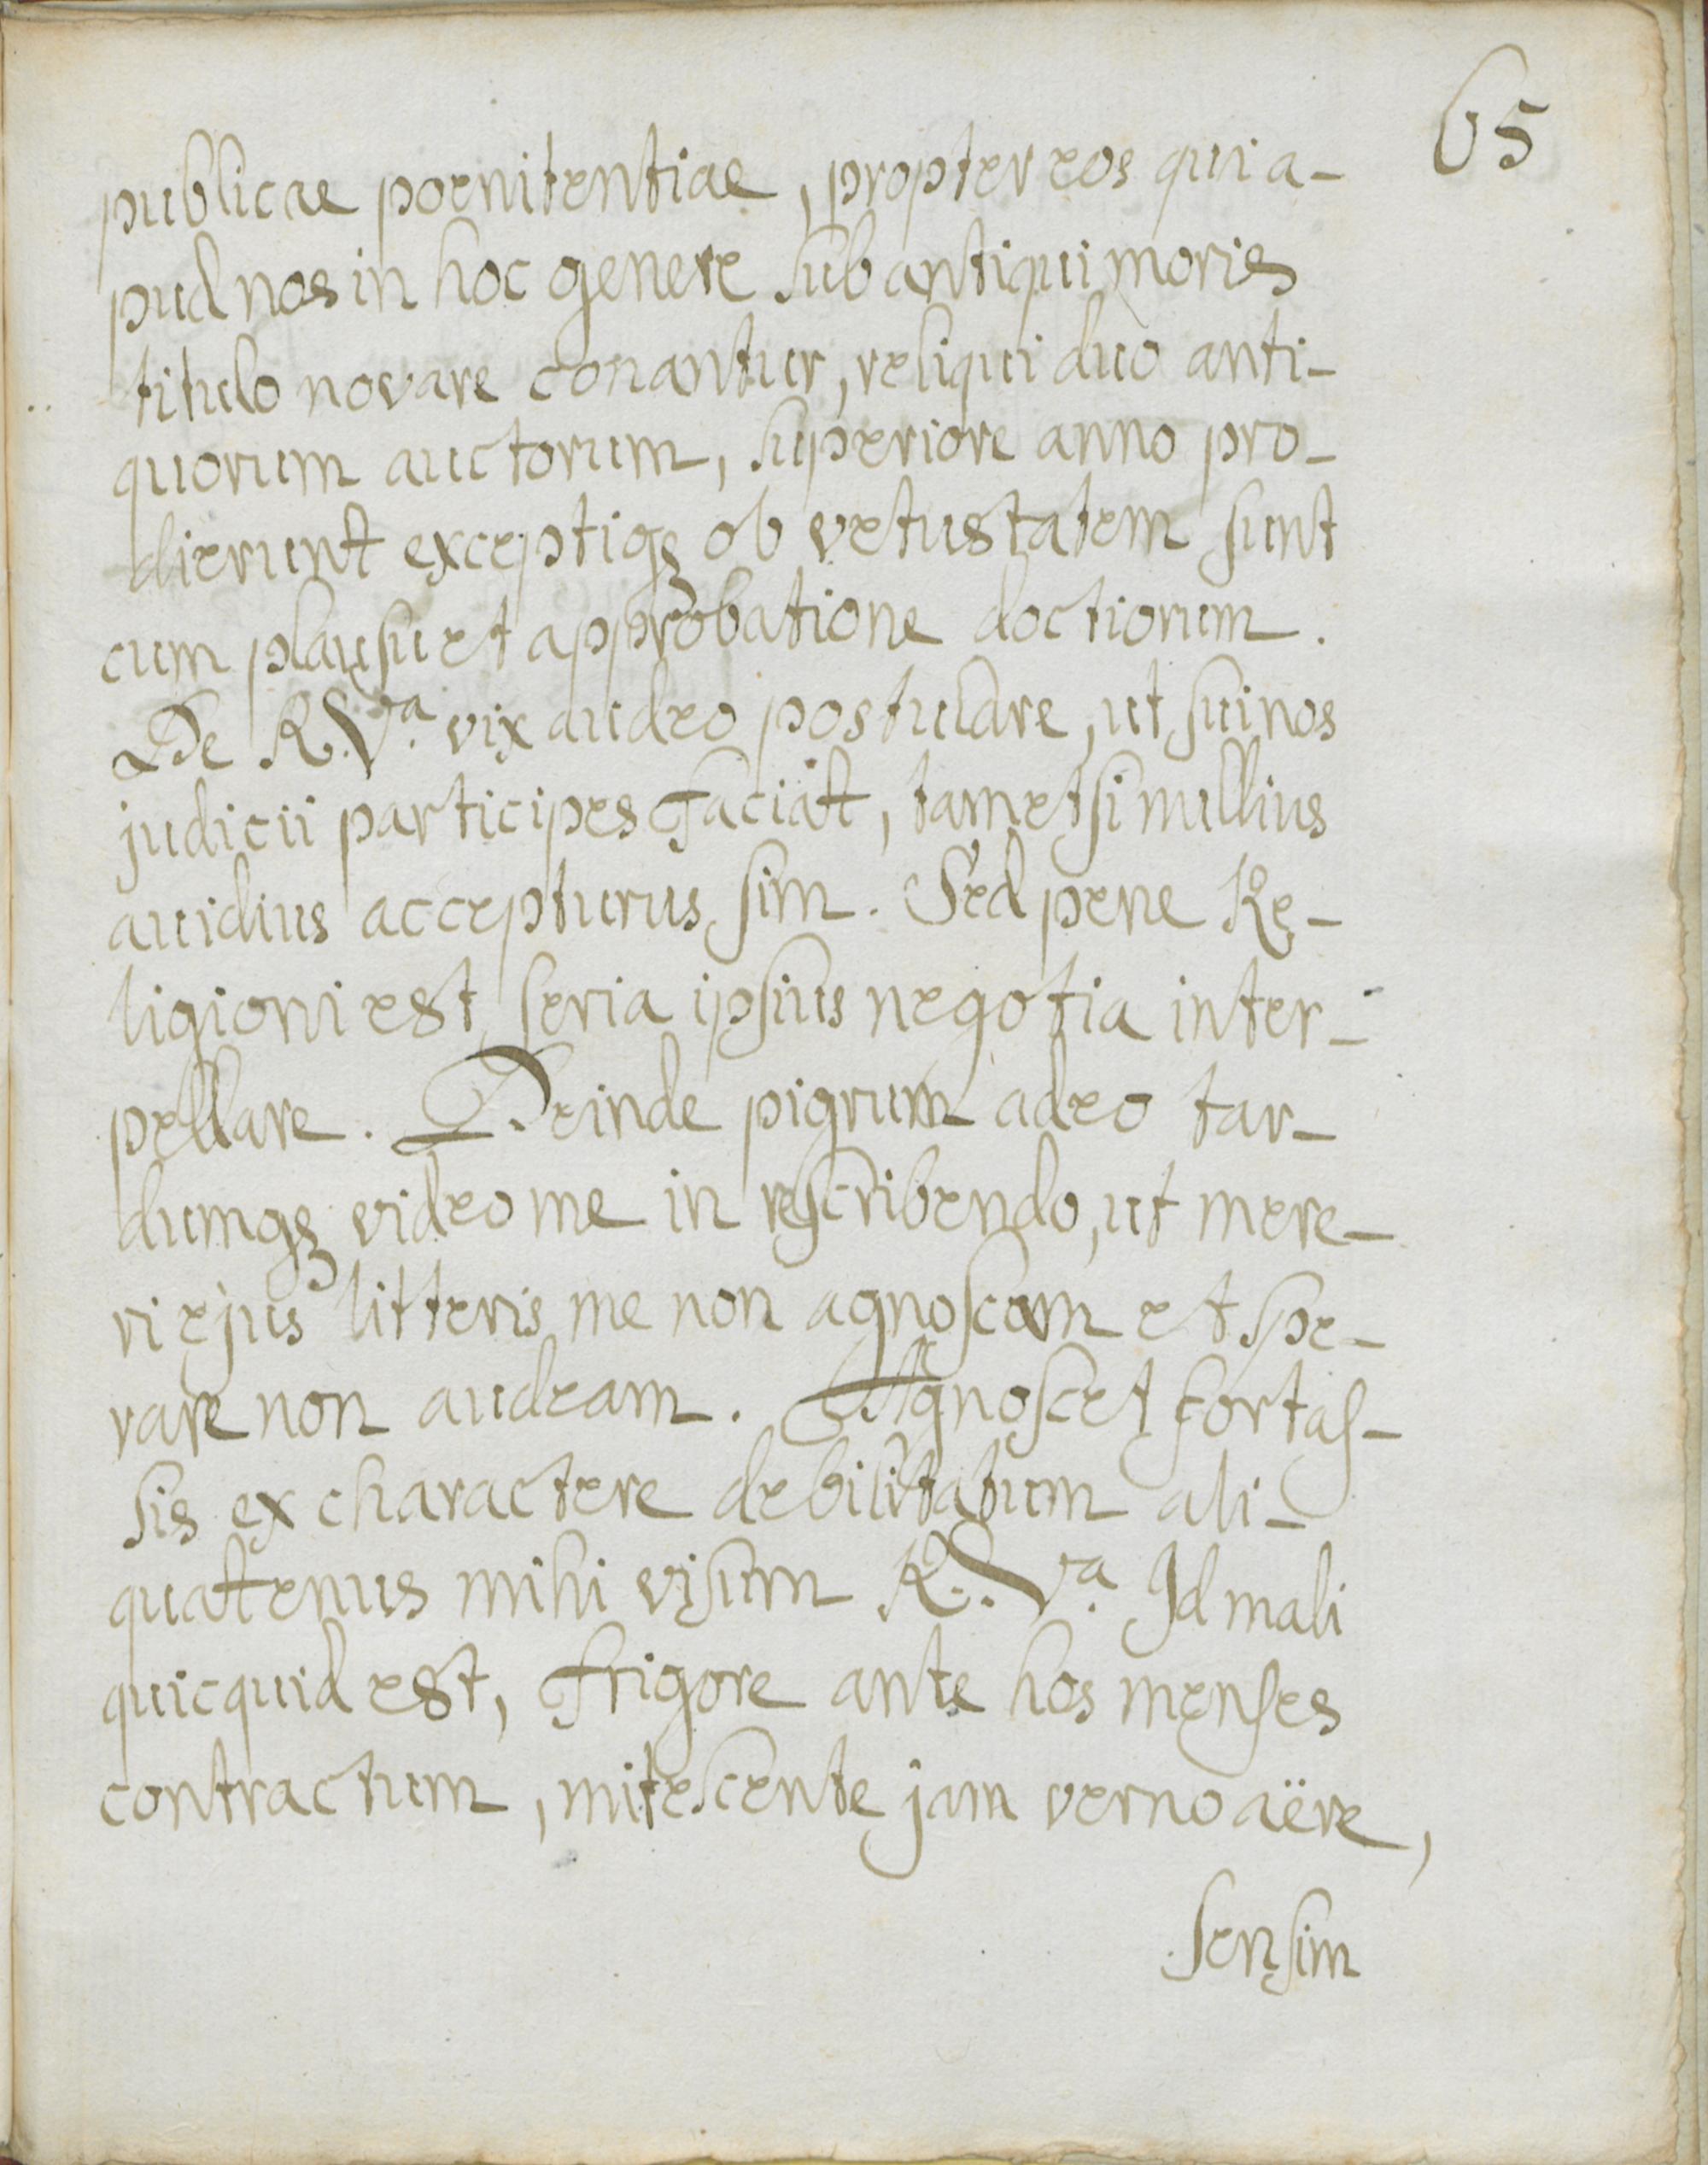 65
publicae poenitentiae, propter eos qui a-
pud nos in hoc genere sub antiqui moris
titulo novare conantur, reliqui duo anti-
quorum auctorum, superiore anno pro-
dierunt exceptiqȝ ob vetustatem sunt
cum plausu et approbatione doctiorum.
De R. Vᵃ. vix audeo postulare, ut sui nos
judicii participes faciat, tametsi nullius
auidius accepturus sim. Sed pene Re-
ligioni est seria ipsius negotia inter-
pellare. Deinde pigrum adeo tar-
dumqȝ video me in rescribendo, ut mere-
ri ejus litteris me non agnoscam et spe-
rare non audeam. Agnoscet fortas-
sis ex charactere debilitatum ali-
quatenus mihi visum R. Vᵃ. Id mali
quicquid est, frigore ante hos menses
contractum, mitescente jam verno aëre,
sensim